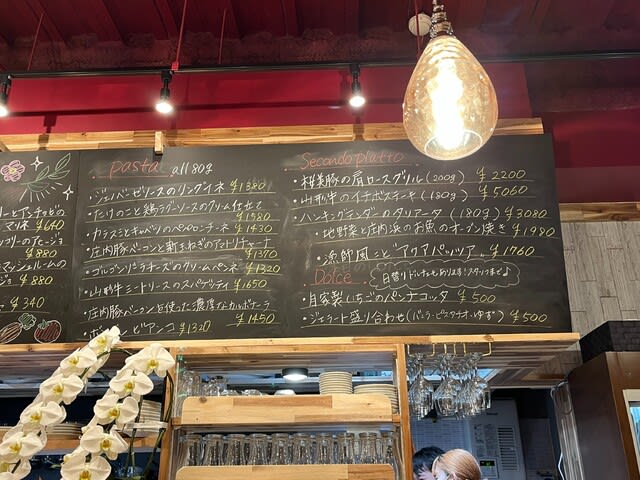 ーとアンチョビの
マリネ ¥640
コリーのアヒージョ
¥880
マッシュルームの
ージョ ¥880
¥340
pasta all 80g
・ジェノベーゼソースのリングイネ ¥1380
・たけのこと鶏ラグーソースのクリーム仕立て
¥1580
・カラスミとキャベツのペペロンチーノ ¥1430
・庄内豚ベーコンと新玉ねぎのアマトリチャーナ
¥1370
・ゴルゴンゾーラチーズのクリームペンネ ¥1320
・山形牛ミートソースのスパゲッティ ¥1650
・庄内豚ベーコンを使った濃厚なカルボナーラ
¥1450
・ボンゴレビアンコ ¥1320
Secondo piatto
・桜美豚の肩ロースグリル (200g) ¥2200
・山形牛のイチボステーキ (180g) ¥5060
・ハンギングテンダーのタリアータ (180g) ¥3080
・地野菜と庄内浜のお魚のオーブン焼き ¥1980
・漁師風 アクアパッツァ ¥1760
Dolce
日替りドルチェもあります！スタッフまで♪
・自家製いちごのパンナコッタ ¥500
・ジェラート盛り合わせ(バニラ・ピスタチオ・ゆず) ¥500